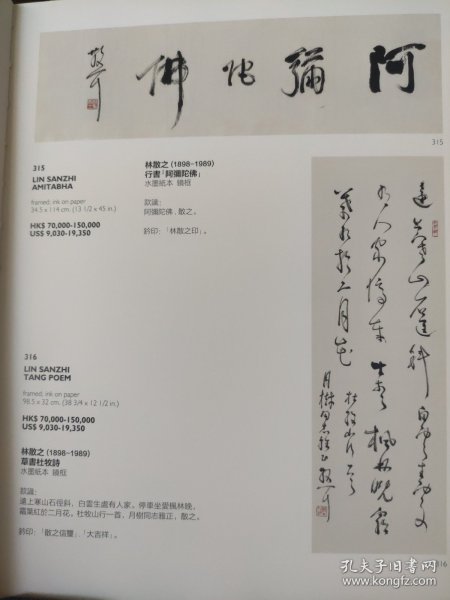 阿彌陀佛
散之
315
315
LIN SANZHI
AMITABHA
framed; ink on paper
34.5 x 114 cm. (13 1/2 x 45 in.)
HK$ 70,000-150,000
US$ 9,030-19,350
林散之 (1898-1989)
行書「阿彌陀佛」
水墨紙本 鏡框
款識：
阿彌陀佛，散之。
鈐印：「林散之印」。
遠上寒山石徑斜白雲生處有
人家停車坐愛楓林晚霜
葉紅於二月花
杜牧山行一首
月樹同志雅正散之
316
LIN SANZHI
TANG POEM
framed; ink on paper
98.5 x 32 cm. (38 3/4 x 12 1/2 in.)
HK$ 70,000-150,000
US$ 9,030-19,350
林散之 (1898-1989)
草書杜牧詩
水墨紙本 鏡框
款識：
遠上寒山石徑斜，白雲生處有人家。停車坐愛楓林晚，
霜葉紅於二月花。杜牧山行一首，月樹同志雅正，散之。
鈐印：「散之信璽」、「大吉祥」。
16
孔夫子旧书网
www.kongfz.com